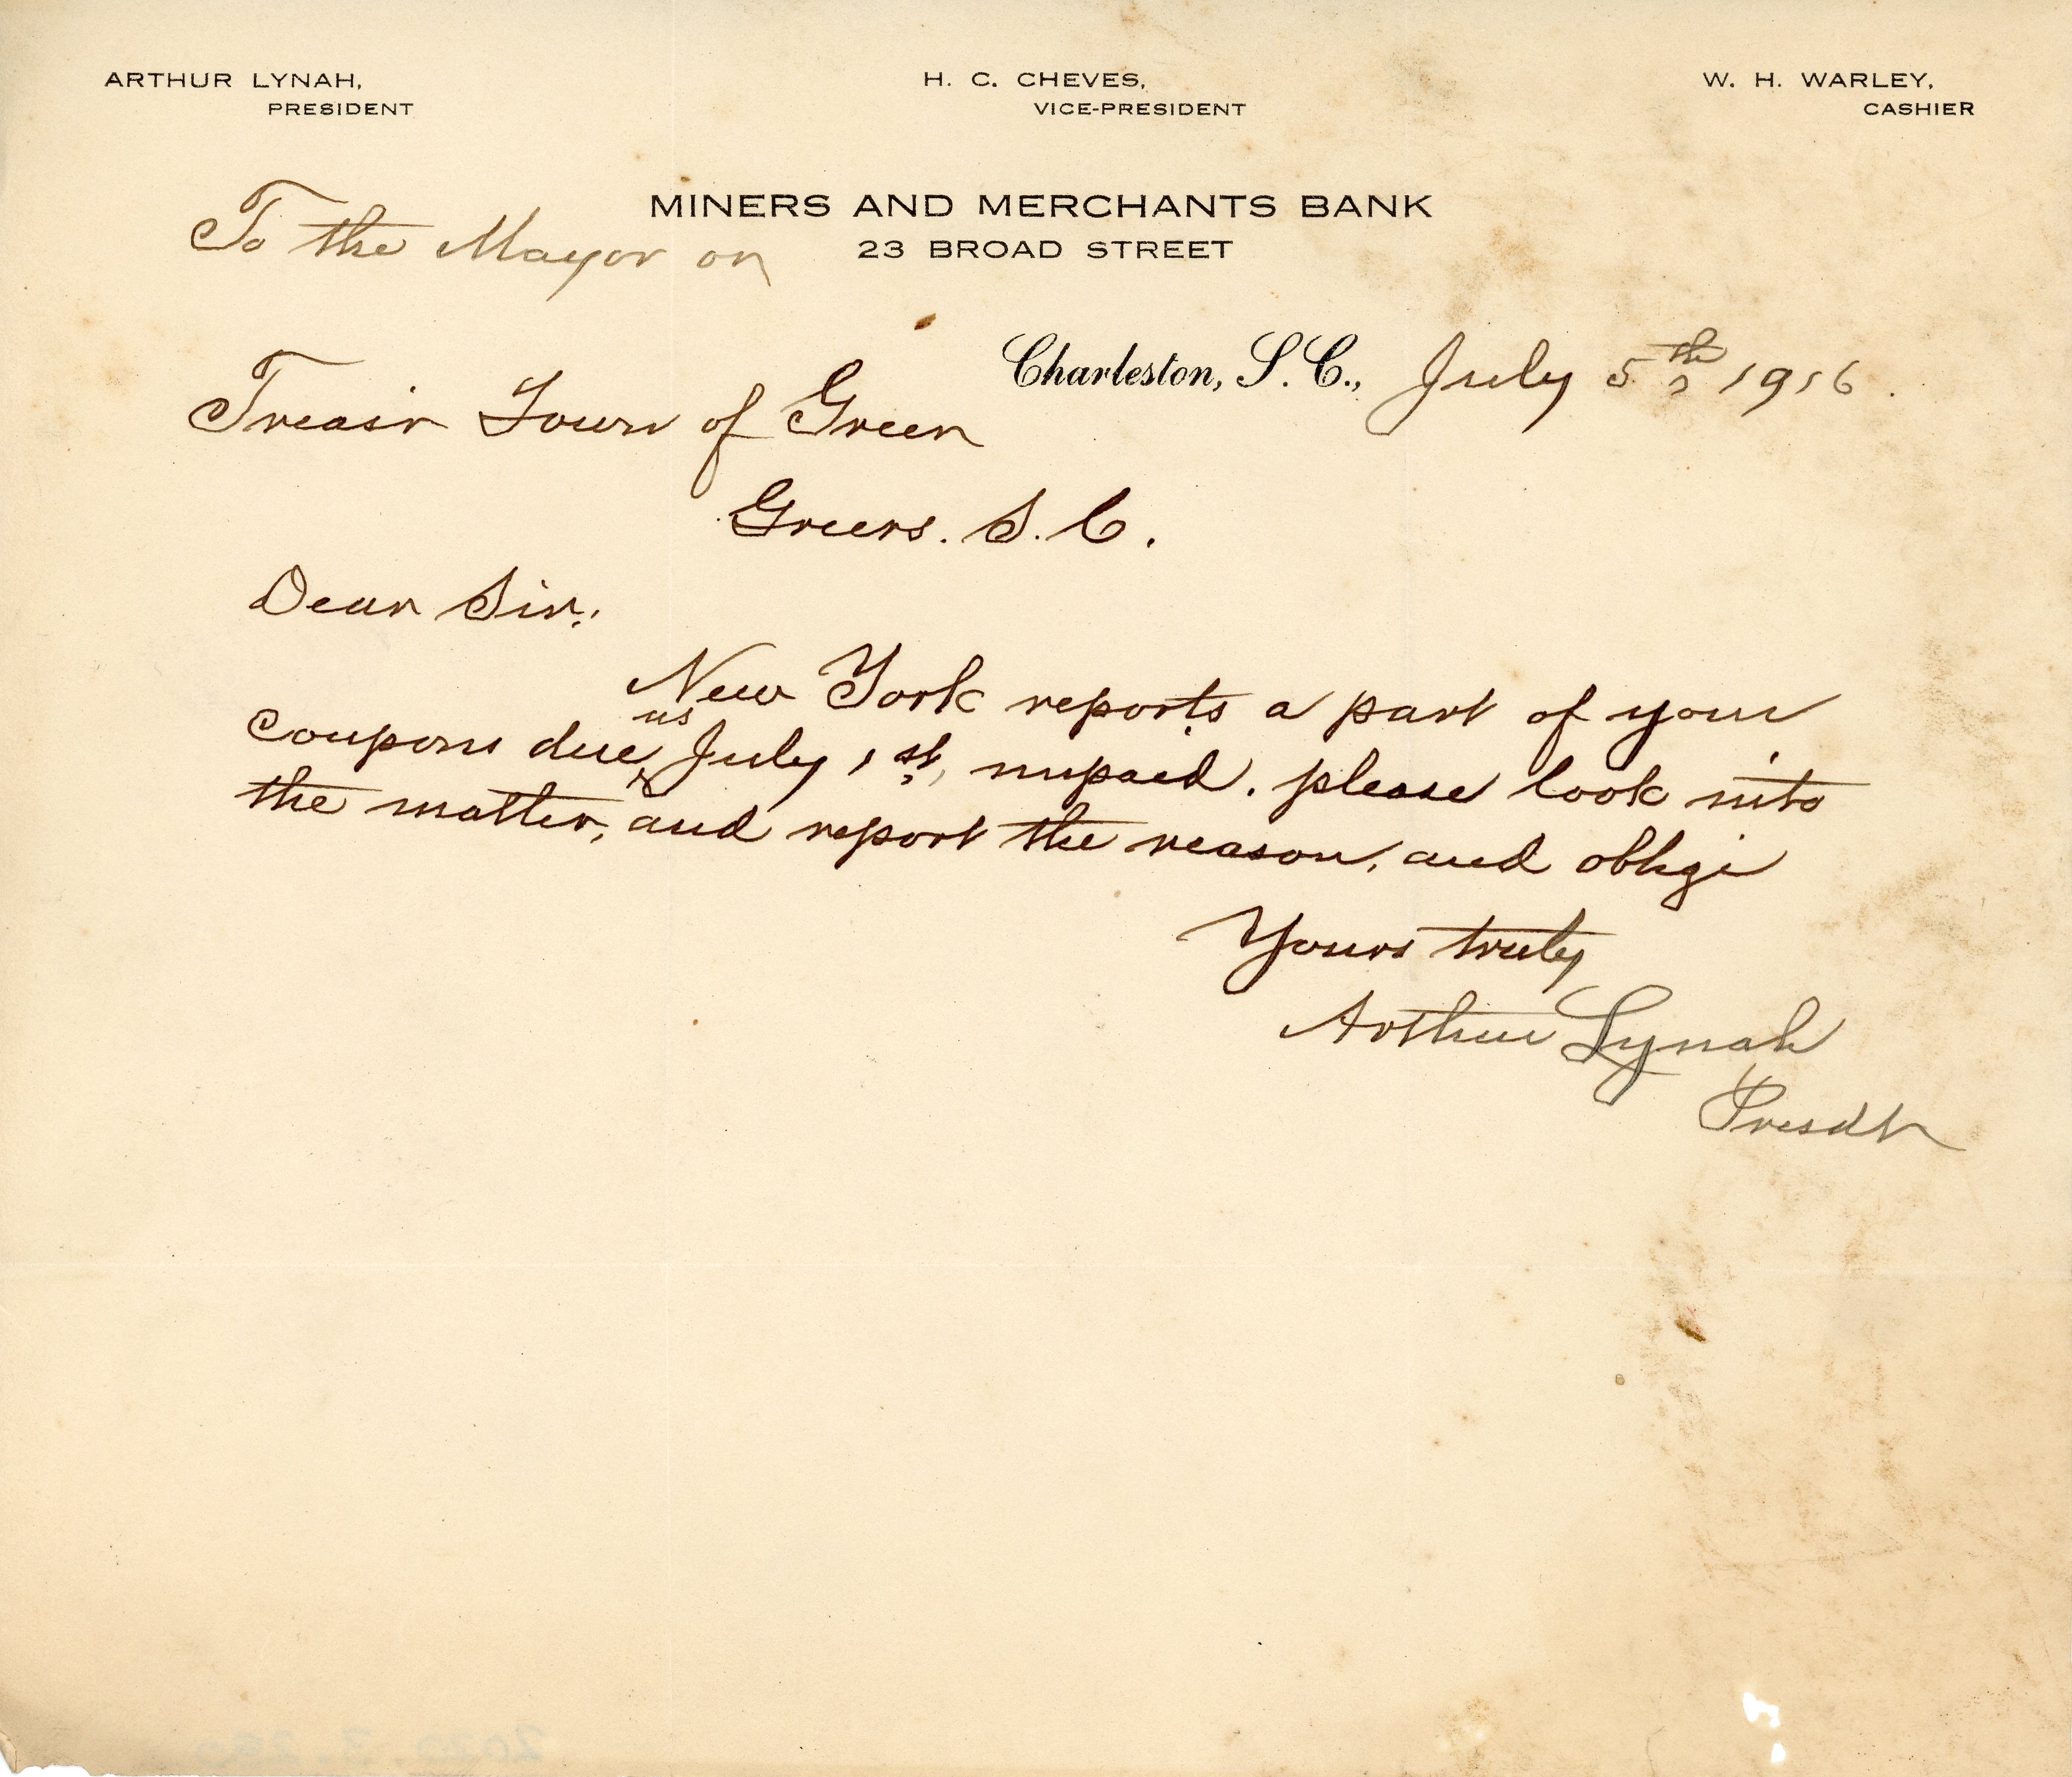 ARTHUR LYNAH,
PRESIDENT
H. C. CHEVES,
VICE-PRESIDENT
W. H. WARLEY,
CASHIER
MINERS AND MERCHANTS BANK
23 BROAD STREET
To the Mayor or
Charleston, S. C., July 5th, 1916.
Treasr Town of Greer
Greers. S. C.
Dear Sir:
New York reports a part of your
coupons due us July 1st, unpaid. please look into
the matter, and report the reason, and oblige
Yours truly
Arthur Lynah
Presdt